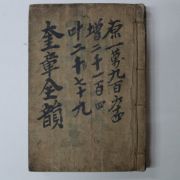 原一萬九百六十四
增二千一百
叶二百七十九
奎章全韻